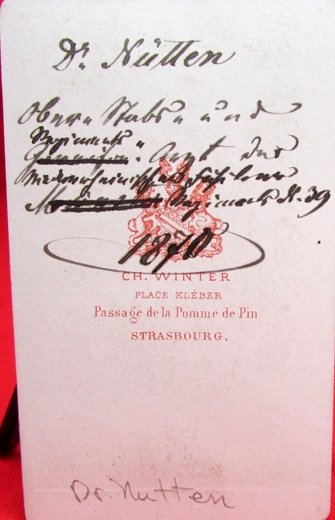 Dr Nütten
Ober-Stabs- und
Regiments-
Arzt des
Niederrheinischen Füsilier
Regiments N. 39
1870
CH. WINTER
PLACE KLÉBER
Passage de la Pomme de Pin
STRASBOURG.
Dr. Nutten